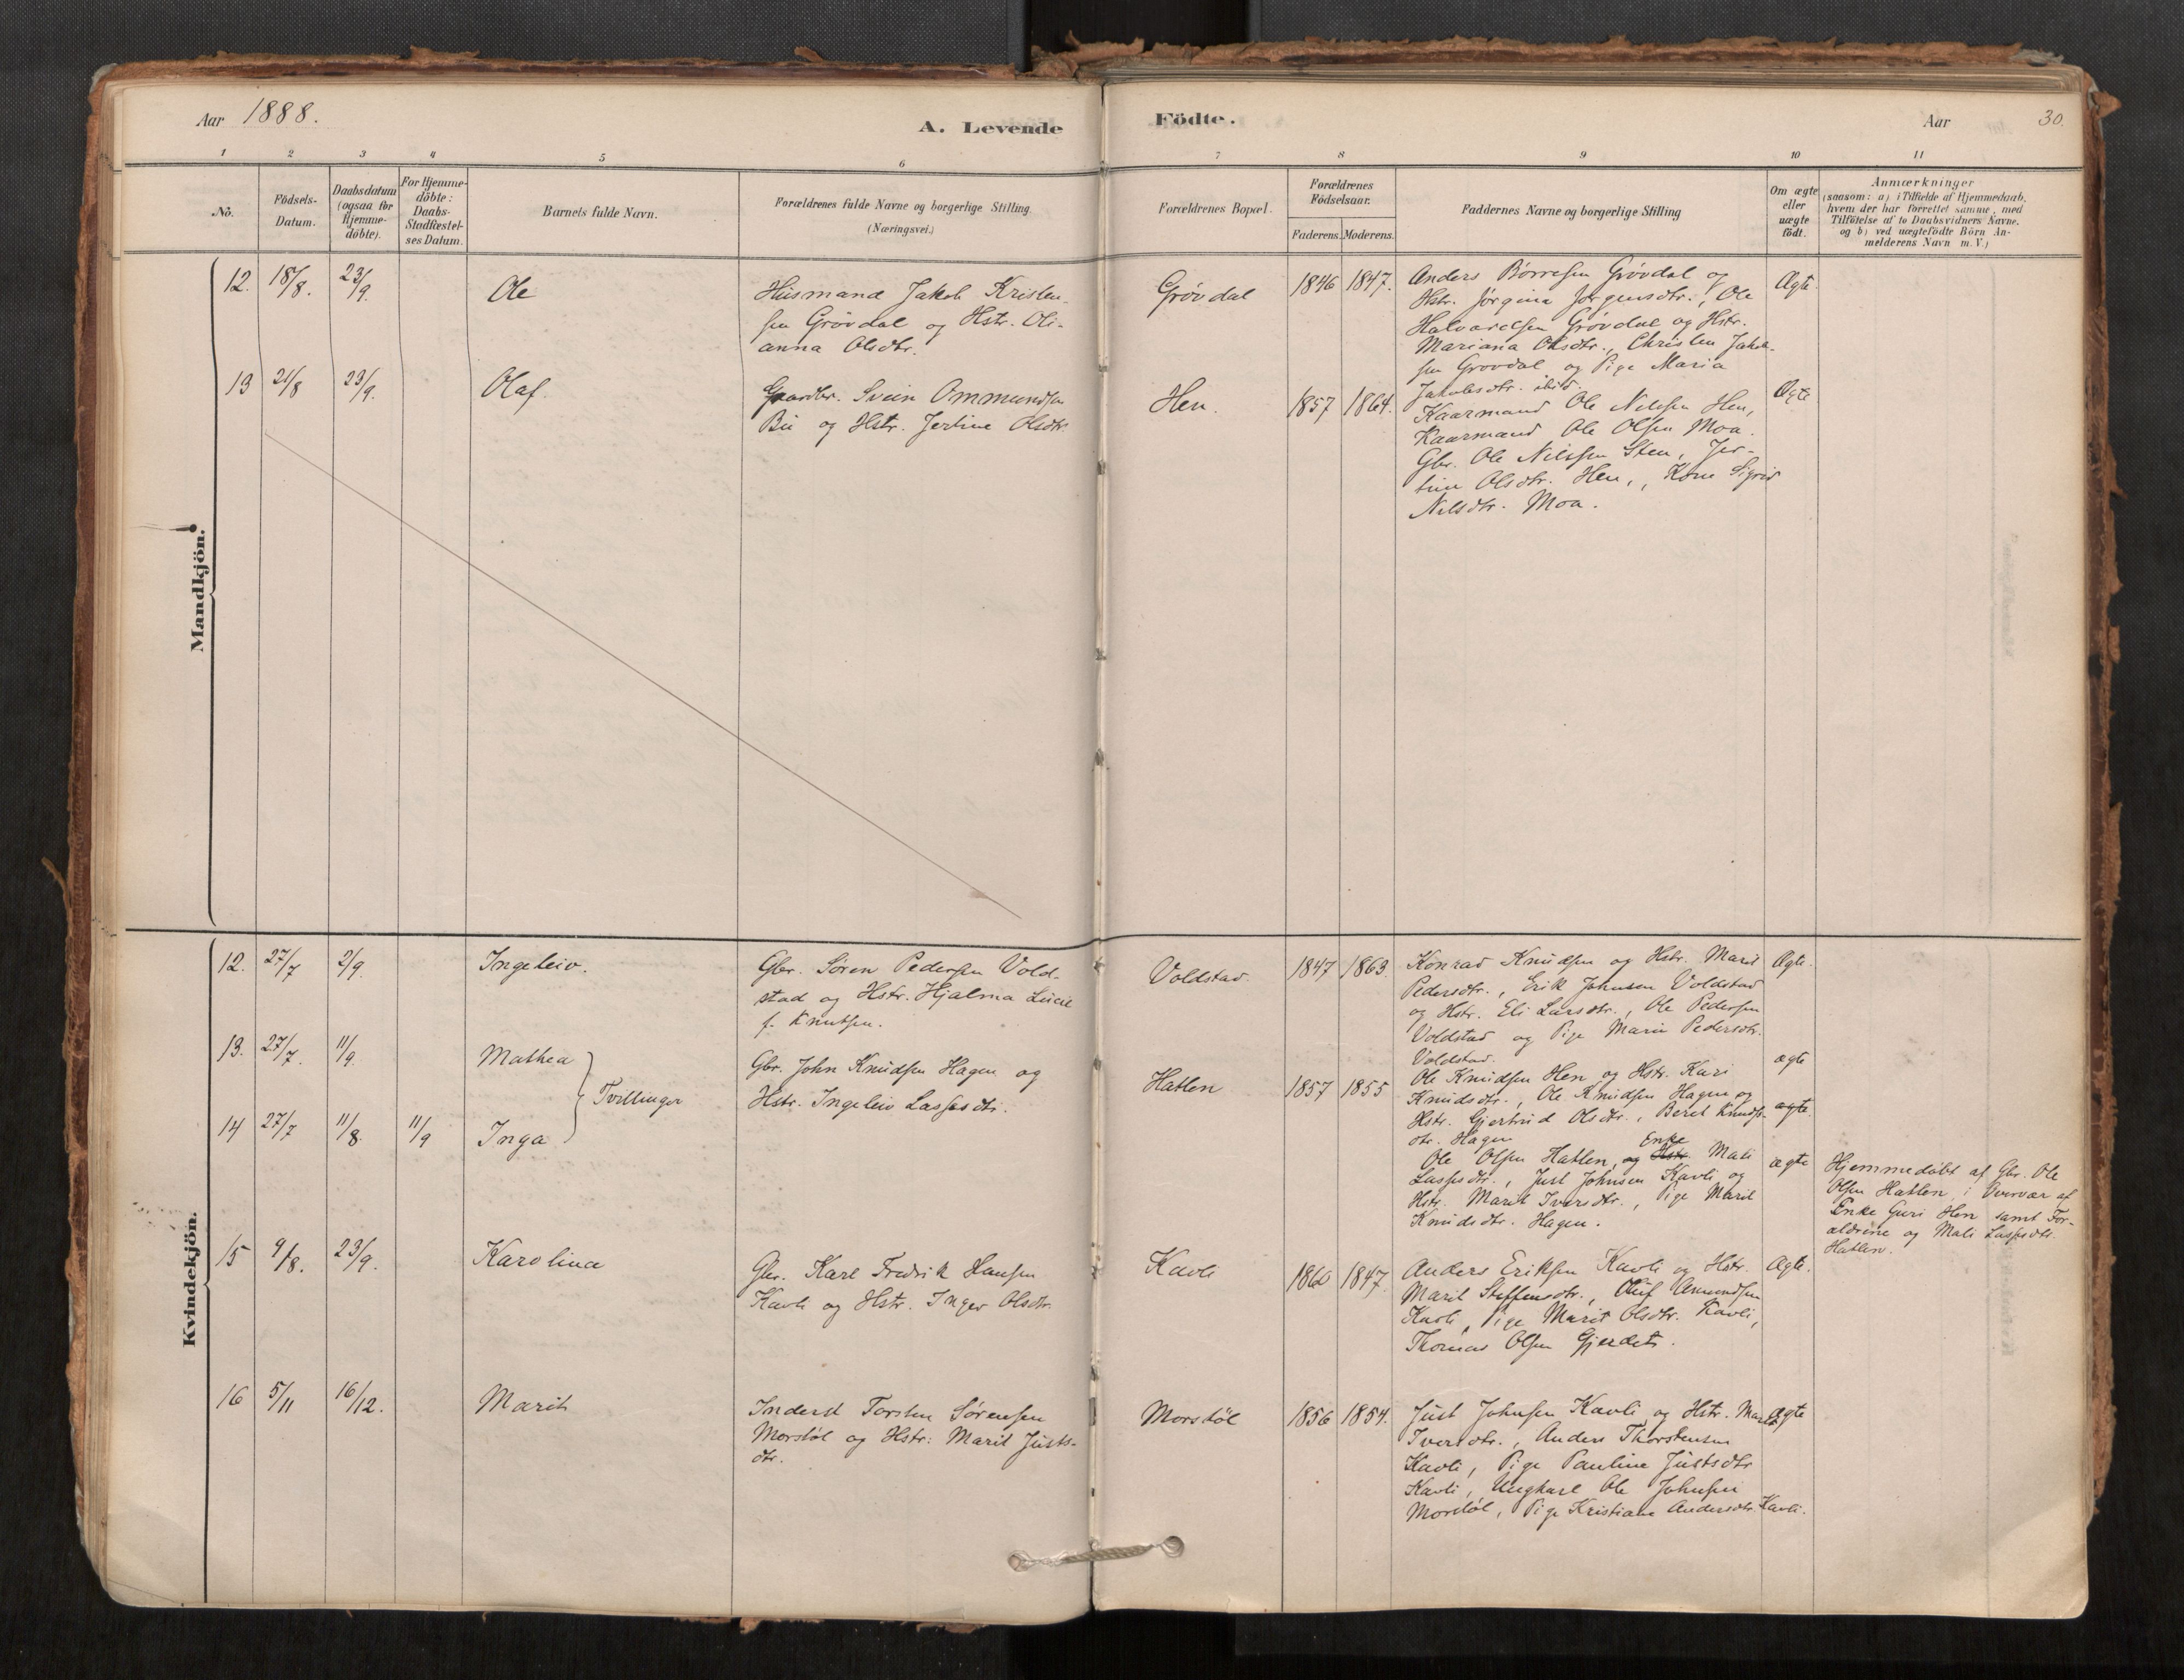 Aar 1888.
A. Levende Födte.
Aar 30.
1 2 3 4 5 6 7 8 9 10 11
No.
Födsels-
Datum.
Daabsdatum
(ogsaa for
Hjemme-
döbte).
For Hjemme-
döbte:
Daabs-
Stadfæstel-
ses Datum.
Barnets fulde Navn.
Forældrenes fulde Navne og borgerlige Stilling
(Næringsvei.)
Forældrenes Bopæl.
Forældrenes
Födselsaar.
Faderens. Moderens.
Faddernes Navne og borgerlige Stilling
Om ægte
eller
uægte
födt.
Anmærkninger
(saasom: a) i Tilfælde af Hjemmedaab,
hvem der har forrettet samme, med
Tilföielse af to Daabsvidners Navne,
og b) ved uægtefödte Börn An-
melderens Navn m. V.)
Mandkjön.
12. 18/8. 23/9. Ole
Husmand Jakob Kristen-
sen Grövdal og Hstr. Oli-
anna Olsdtr.
Grövdal 1846 1847.
Anders Börresen Grövdal og
Hstr. Jörgina Jörgensdtr., Ole
Halvorsen Grövdal og Hstr.
Mariana Olsdtr., Christen Jakob-
sen Grovdal og Pige Maria
Jakobsdtr. ibid.
Ægte
13 21/8 23/9. Olaf.
Gaardbr. Svein Ommundsen
Bü og Hstr. Jertine Olsdtr.
Hen. 1857 1864.
Kaarmand Ole Nilssen Hen,
Kaarmand Ole Olsen Moa.
Gbr. Ole Nilssen Sten, Jer-
tine Olsdtr. Hen,, Kone Sigrid
Nilsdtr. Moa.
Ægte
Kvindekjön.
12. 27/7 2/9. Ingeleiv.
Gbr. Sören Pedersen Vold-
stad og Hstr. Hjalma Lucie
f. Knutsen.
Voldstad 1847 1863
Konrad Knudsen og Hstr. Marit
Pedersdtr., Erik Johnsen Voldstad
og Hstr. Eli Larsdtr., Ole Pedersen
Voldstad og Pige Marie Pedersdtr.
Voldstad.
Ægte.
13. 27/7. 11/9. Mathea
Tvillinger
Gbr. John Knudsen Hagen og
Hstr. Ingeleiv Lassesdtr.
Hatlen 1857 1855
Ole Knudsen Hen og Hstr. Kari
Knudsdtr., Ole Knudsen Hagen og
Hstr. Gjertrud Olsdtr., Beret Knuds-
dtr. Hagen
ægte
ægte
14 27/7 11/8. 11/9 Inga
Ole Olsen Hatlen, og Hstr. Enke Mali
Lassesdtr., Just Johnsen Kavli og
Hstr. Marit Iversdtr., Pige Marit
Knudsdtr. Hagen.
ægte
Hjemmedøbt af Gbr. Ole
Olsen Hatlen i Overvær af
Enke Guri Hen samt For-
ældrene og Mali Lassesdtr.
Hatlen.
15 9/8. 23/9. Karolina
Gbr. Karl Fredrik Hansen
Kavli og Hstr. Inger Olsdtr.
Kavli 1860 1847.
Anders Eriksen Kavli og Hstr.
Marit Steffensdtr., Oluf Amundsen
Kavli, Pige Marit Olsdtr. Kavli,
Thomas Olsen Gjerdet.
Ægte.
16 5/11 16/12. Marit
Inderst Torsten Sörensen
Morstöl og Hstr: Marit Justs-
dtr.
Morstöl 1856 1854.
Just Johnsen Kavli og Hstr. Marit
Iversdtr., Anders Thorstensen
Kavli, Pige Pauline Justsdtr
Kavli, Ungkarl Ole Johnsen
Morstöl, Pige Kristiane Andersdtr. Kavli.
Ægte